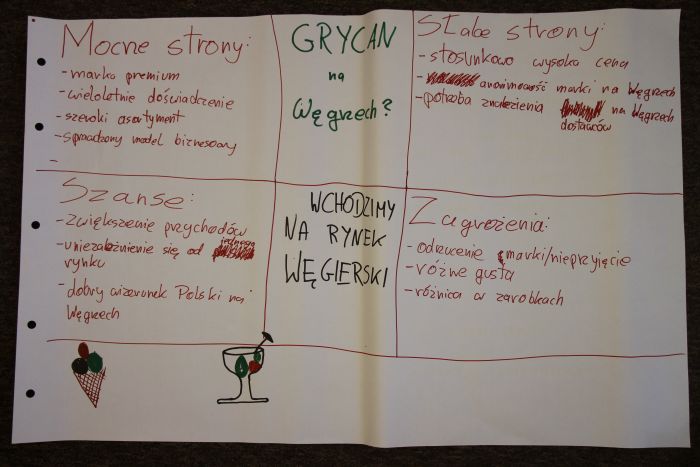 Mocne strony:
- marka premium
- wieloletnie doświadczenie
- szeroki asortyment
- sprawdzony model biznesowy
-
GRYCAN
na
Węgrzech?
Słabe strony:
- stosunkowo wysoka cena
- anonimowość marki na Węgrzech
- potrzeba znalezienia na Węgrzech
dostawców
Szanse:
- zwiększenie przychodów
- uniezależnienie się od jednego
rynku
- dobry wizerunek Polski na
Węgrzech
WCHODZIMY
NA RYNEK
WĘGIERSKI
Zagrożenia:
- odrzucenie marki/nieprzyjęcie
- różne gusta
- różnica w zarobkach